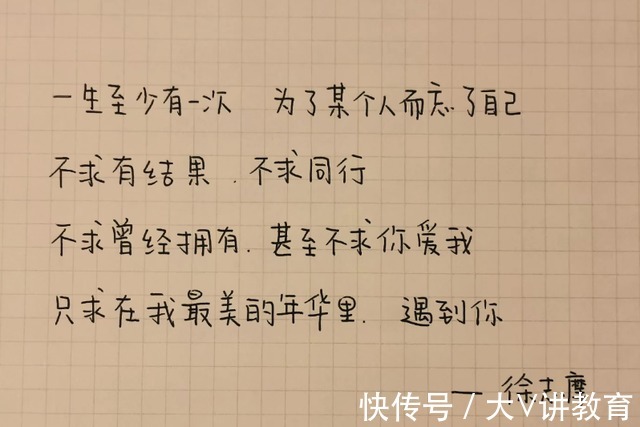 一生至少有一次 为了某个人而忘了自己
不求有结果.不求同行
不求曾经拥有.甚至不求你爱我
只求在我最美的年华里. 遇到你
— 徐志摩
快传号 / 大V讲教育